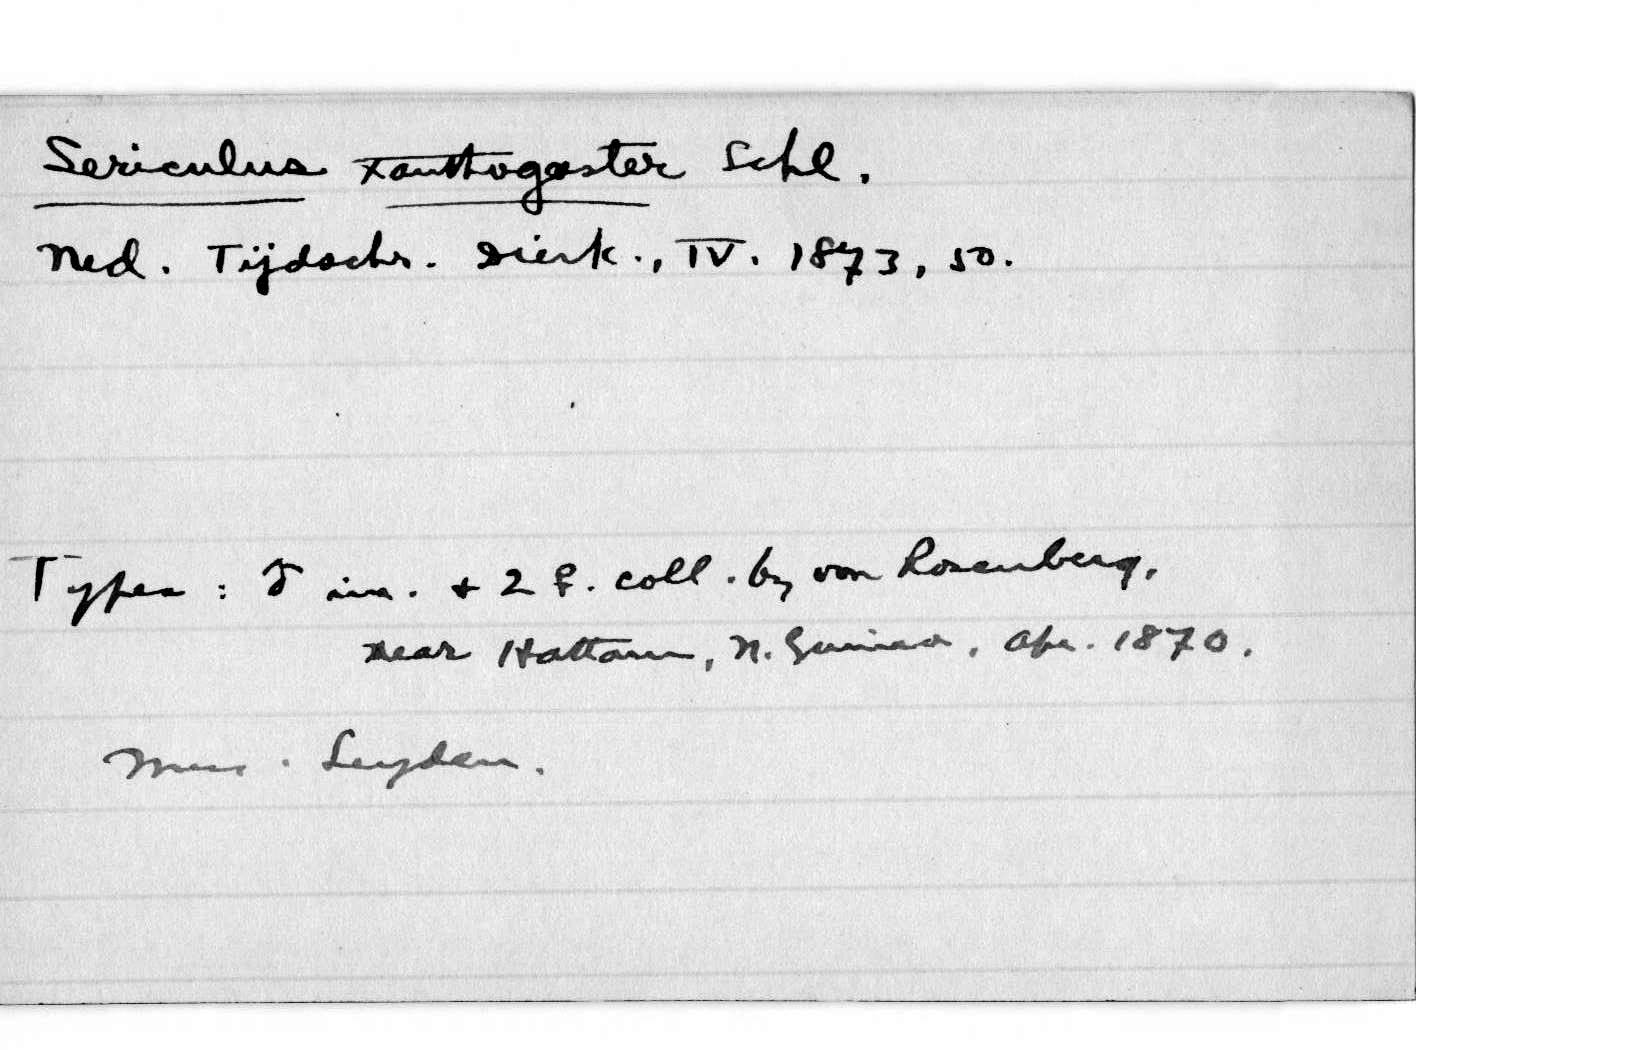 Sericulus xanthogaster Schl.
Ned. Tijdschr. Dierk., IV. 1873, 50.
Types : ♂ im. + 2 ♀. coll. by von Rosenberg,
near Hattam, N. Guinea, Apr. 1870.
Mus. Leyden.